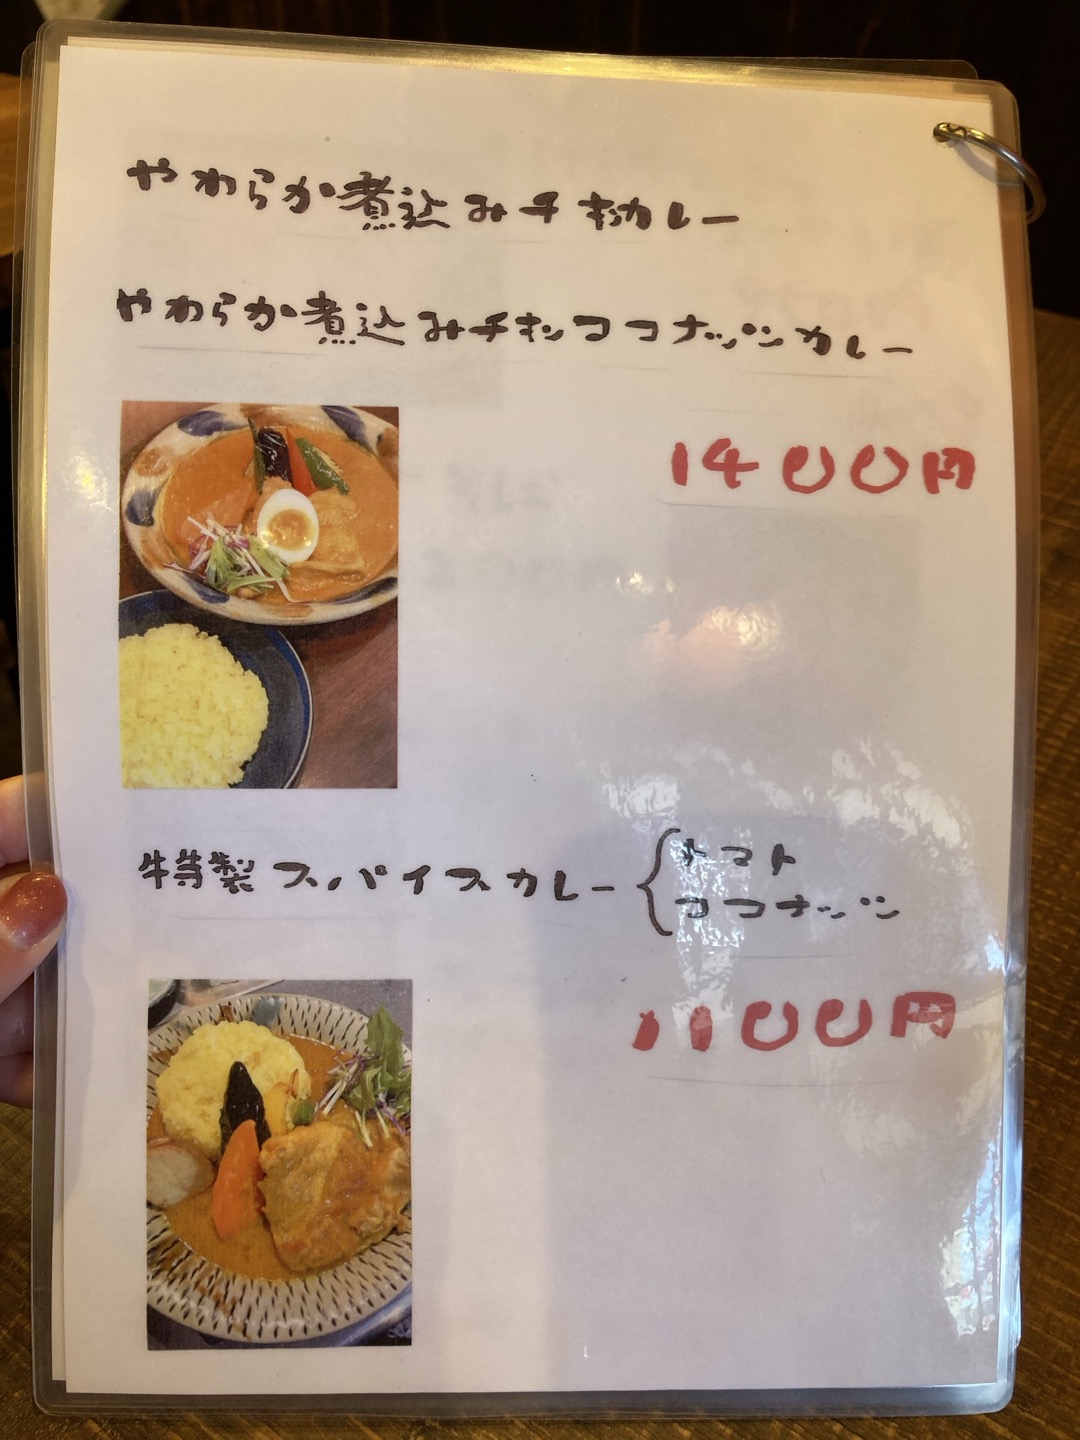 やわらか煮込みチキンカレー
やわらか煮込みチキンココナッツカレー
1400円
特製スパイスカレー{トマト
ココナッツ
1100円